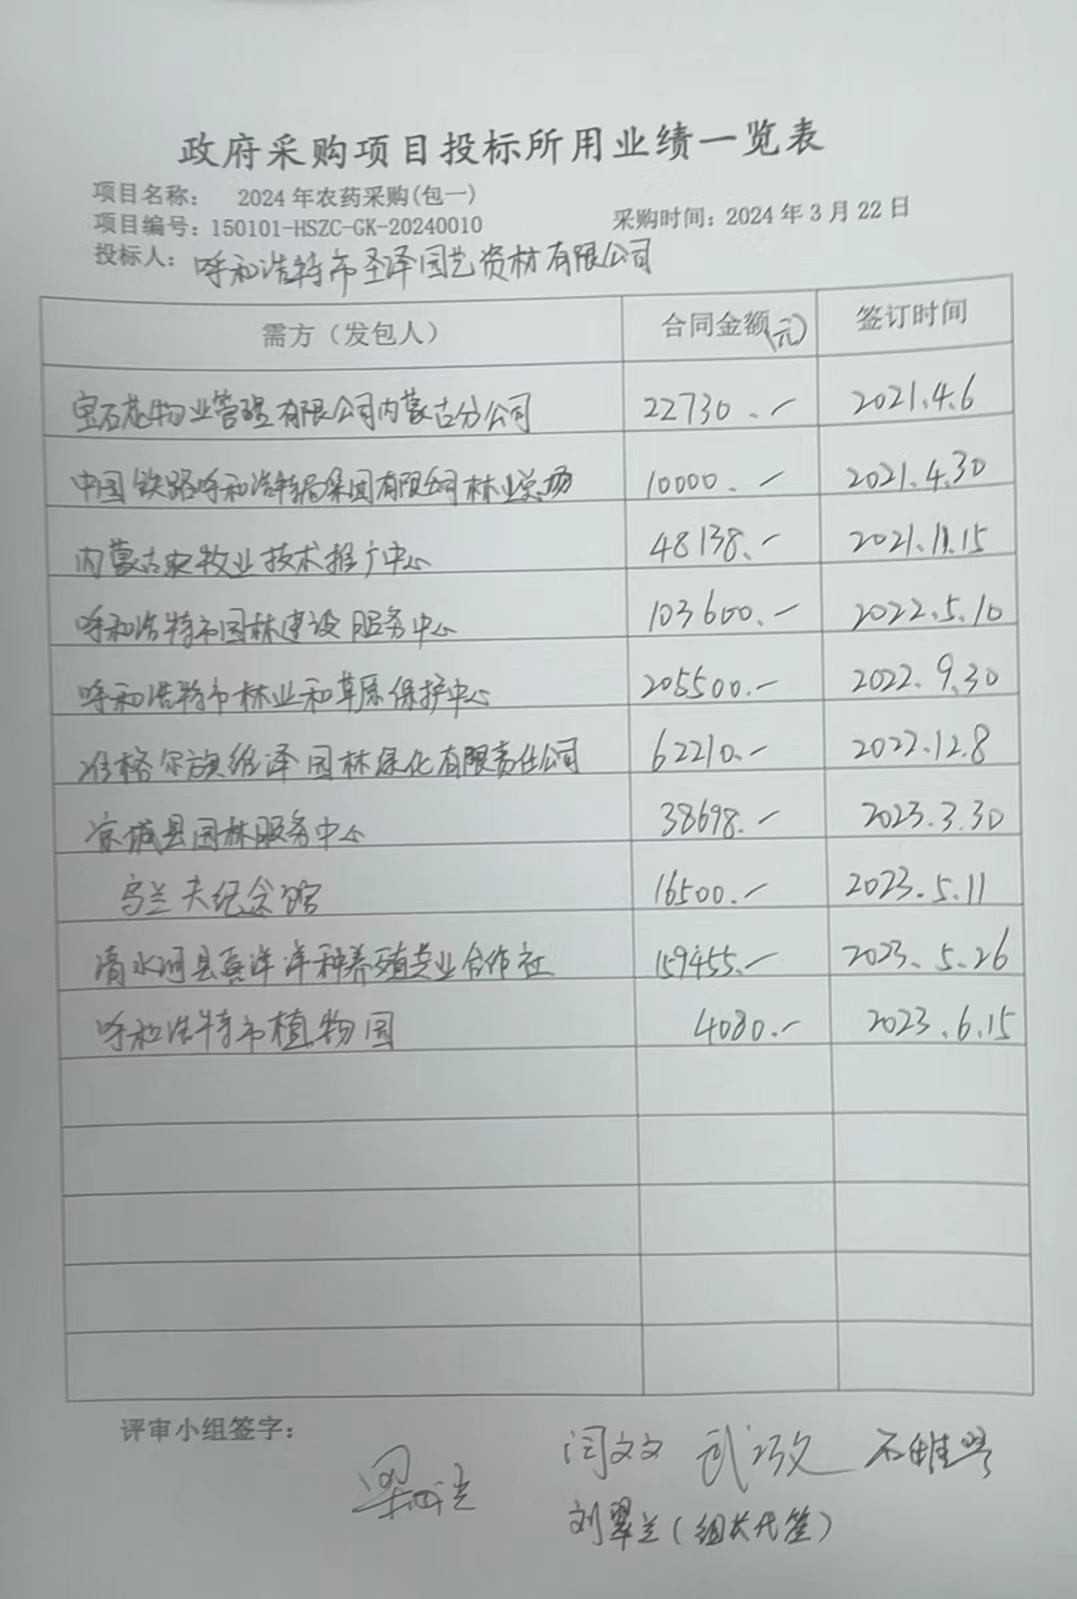 政府采购项目投标所用业绩一览表
项目名称： 2024年农药采购(包一)
项目编号：150101-HSZC-GK-20240010 采购时间：2024年3月22日
投标人：呼和浩特市圣泽园艺资材有限公司
需方（发包人） 合同金额(元) 签订时间
宝石花物业管理有限公司内蒙古分公司 22730.- 2021.4.6
中国铁路呼和浩特局集团有限公司林业总场 10000.- 2021.4.30
内蒙古农牧业技术推广中心 48138.- 2021.11.15
呼和浩特市园林建设服务中心 103600.- 2022.5.10
呼和浩特市林业和草原保护中心 205500.- 2022.9.30
准格尔旗维泽园林绿化有限责任公司 62210.- 2022.12.8
凉城县园林服务中心 38698.- 2023.3.30
乌兰夫纪念馆 16500.- 2023.5.11
清水河县喜洋洋种养殖专业合作社 159455.- 2023.5.26
呼和浩特市植物园 4080.- 2023.6.15
评审小组签字：
闫文文
刘翠兰（组长代签）